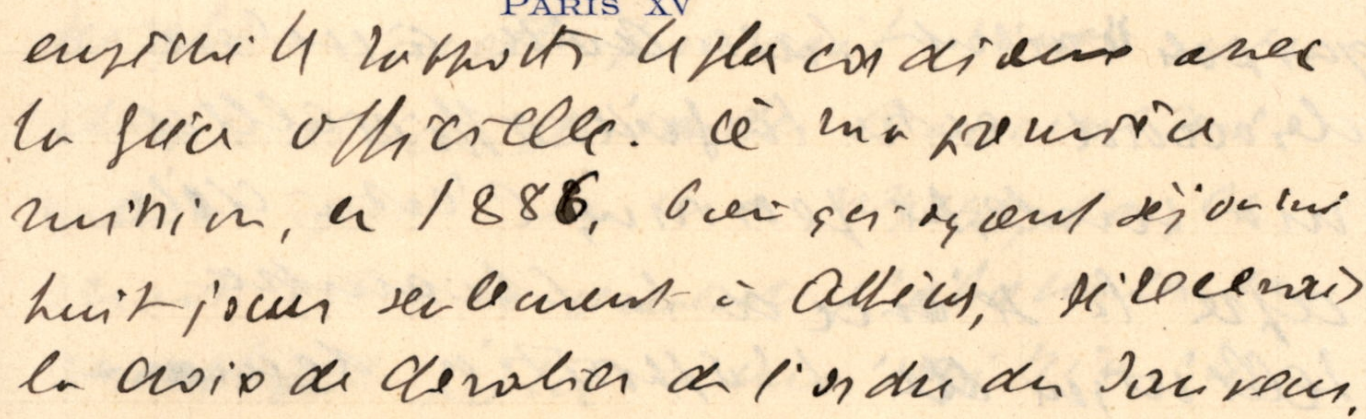 PARIS XV
les rapports les plus cordiaux avec
la Grèce officielle. Dès ma première
mission, en 1886, bien que n'ayant séjourné
huit jours seulement à Athènes, je recevais
la croix de Chevalier de l'ordre du Sauveur.